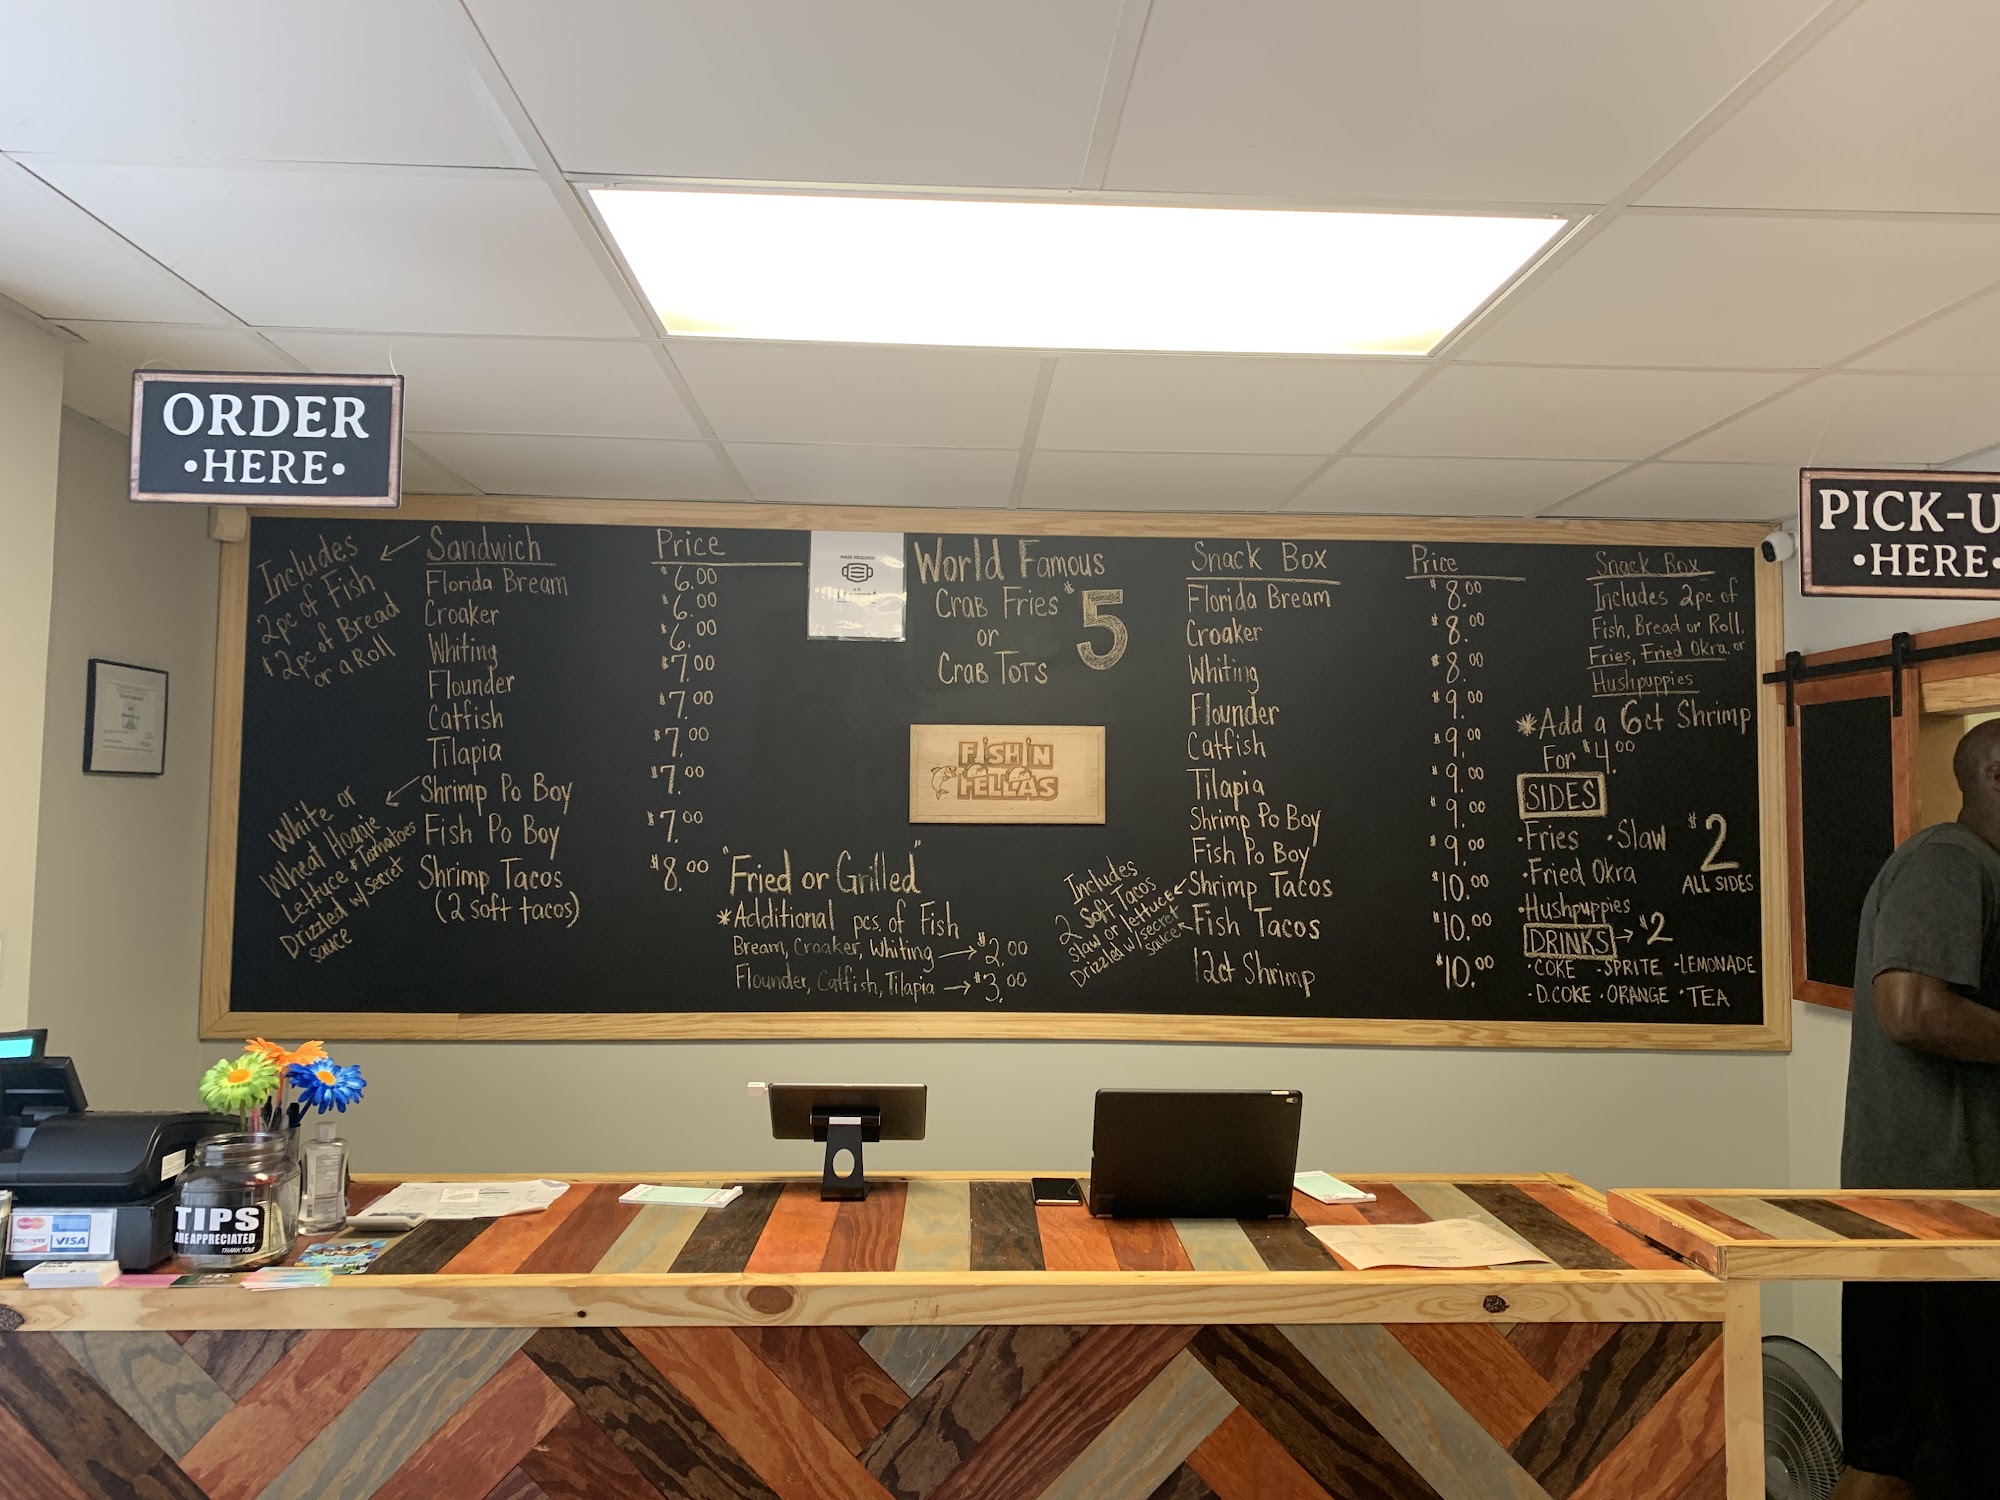 ORDER
•HERE•
PICK-U
•HERE•
Includes
2pc of Fish
& 2pc of Bread
or a Roll
Sandwich Price
Florida Bream $6.00
Croaker $6.00
Whiting $6.00
Flounder $7.00
Catfish $7.00
Tilapia $7.00
Shrimp Po Boy $7.00
Fish Po Boy $7.00
Shrimp Tacos $8.00
(2 soft tacos)
White or
Wheat Hoagie
Lettuce & Tomatoes
Drizzled w/secret
sauce
MASK REQUIRED
World Famous
Crab Fries $5
or
Crab Tots
FISH'N
FELLAS
"Fried or Grilled"
*Additional pcs. of Fish
Bream, Croaker, Whiting → $2.00
Flounder, Catfish, Tilapia → $3.00
Snack Box Price
Florida Bream $8.00
Croaker $8.00
Whiting $8.00
Flounder $9.00
Catfish $9.00
Tilapia $9.00
Shrimp Po Boy $9.00
Fish Po Boy $9.00
Shrimp Tacos $10.00
Fish Tacos $10.00
12ct Shrimp $10.00
Includes
2 Soft Tacos
Slaw or lettuce
Drizzled w/secret
sauce
Snack Box
Includes 2pc of
Fish, Bread or Roll.
Fries, Fried Okra, or
Hushpuppies
*Add a 6ct Shrimp
For $4.00
SIDES
•Fries •Slaw
•Fried Okra
•Hushpuppies
$2
ALL SIDES
DRINKS → $2
•COKE •SPRITE •LEMONADE
•D.COKE •ORANGE •TEA
TIPS
ARE APPRECIATED
THANK YOU!
DISCOVER
VISA